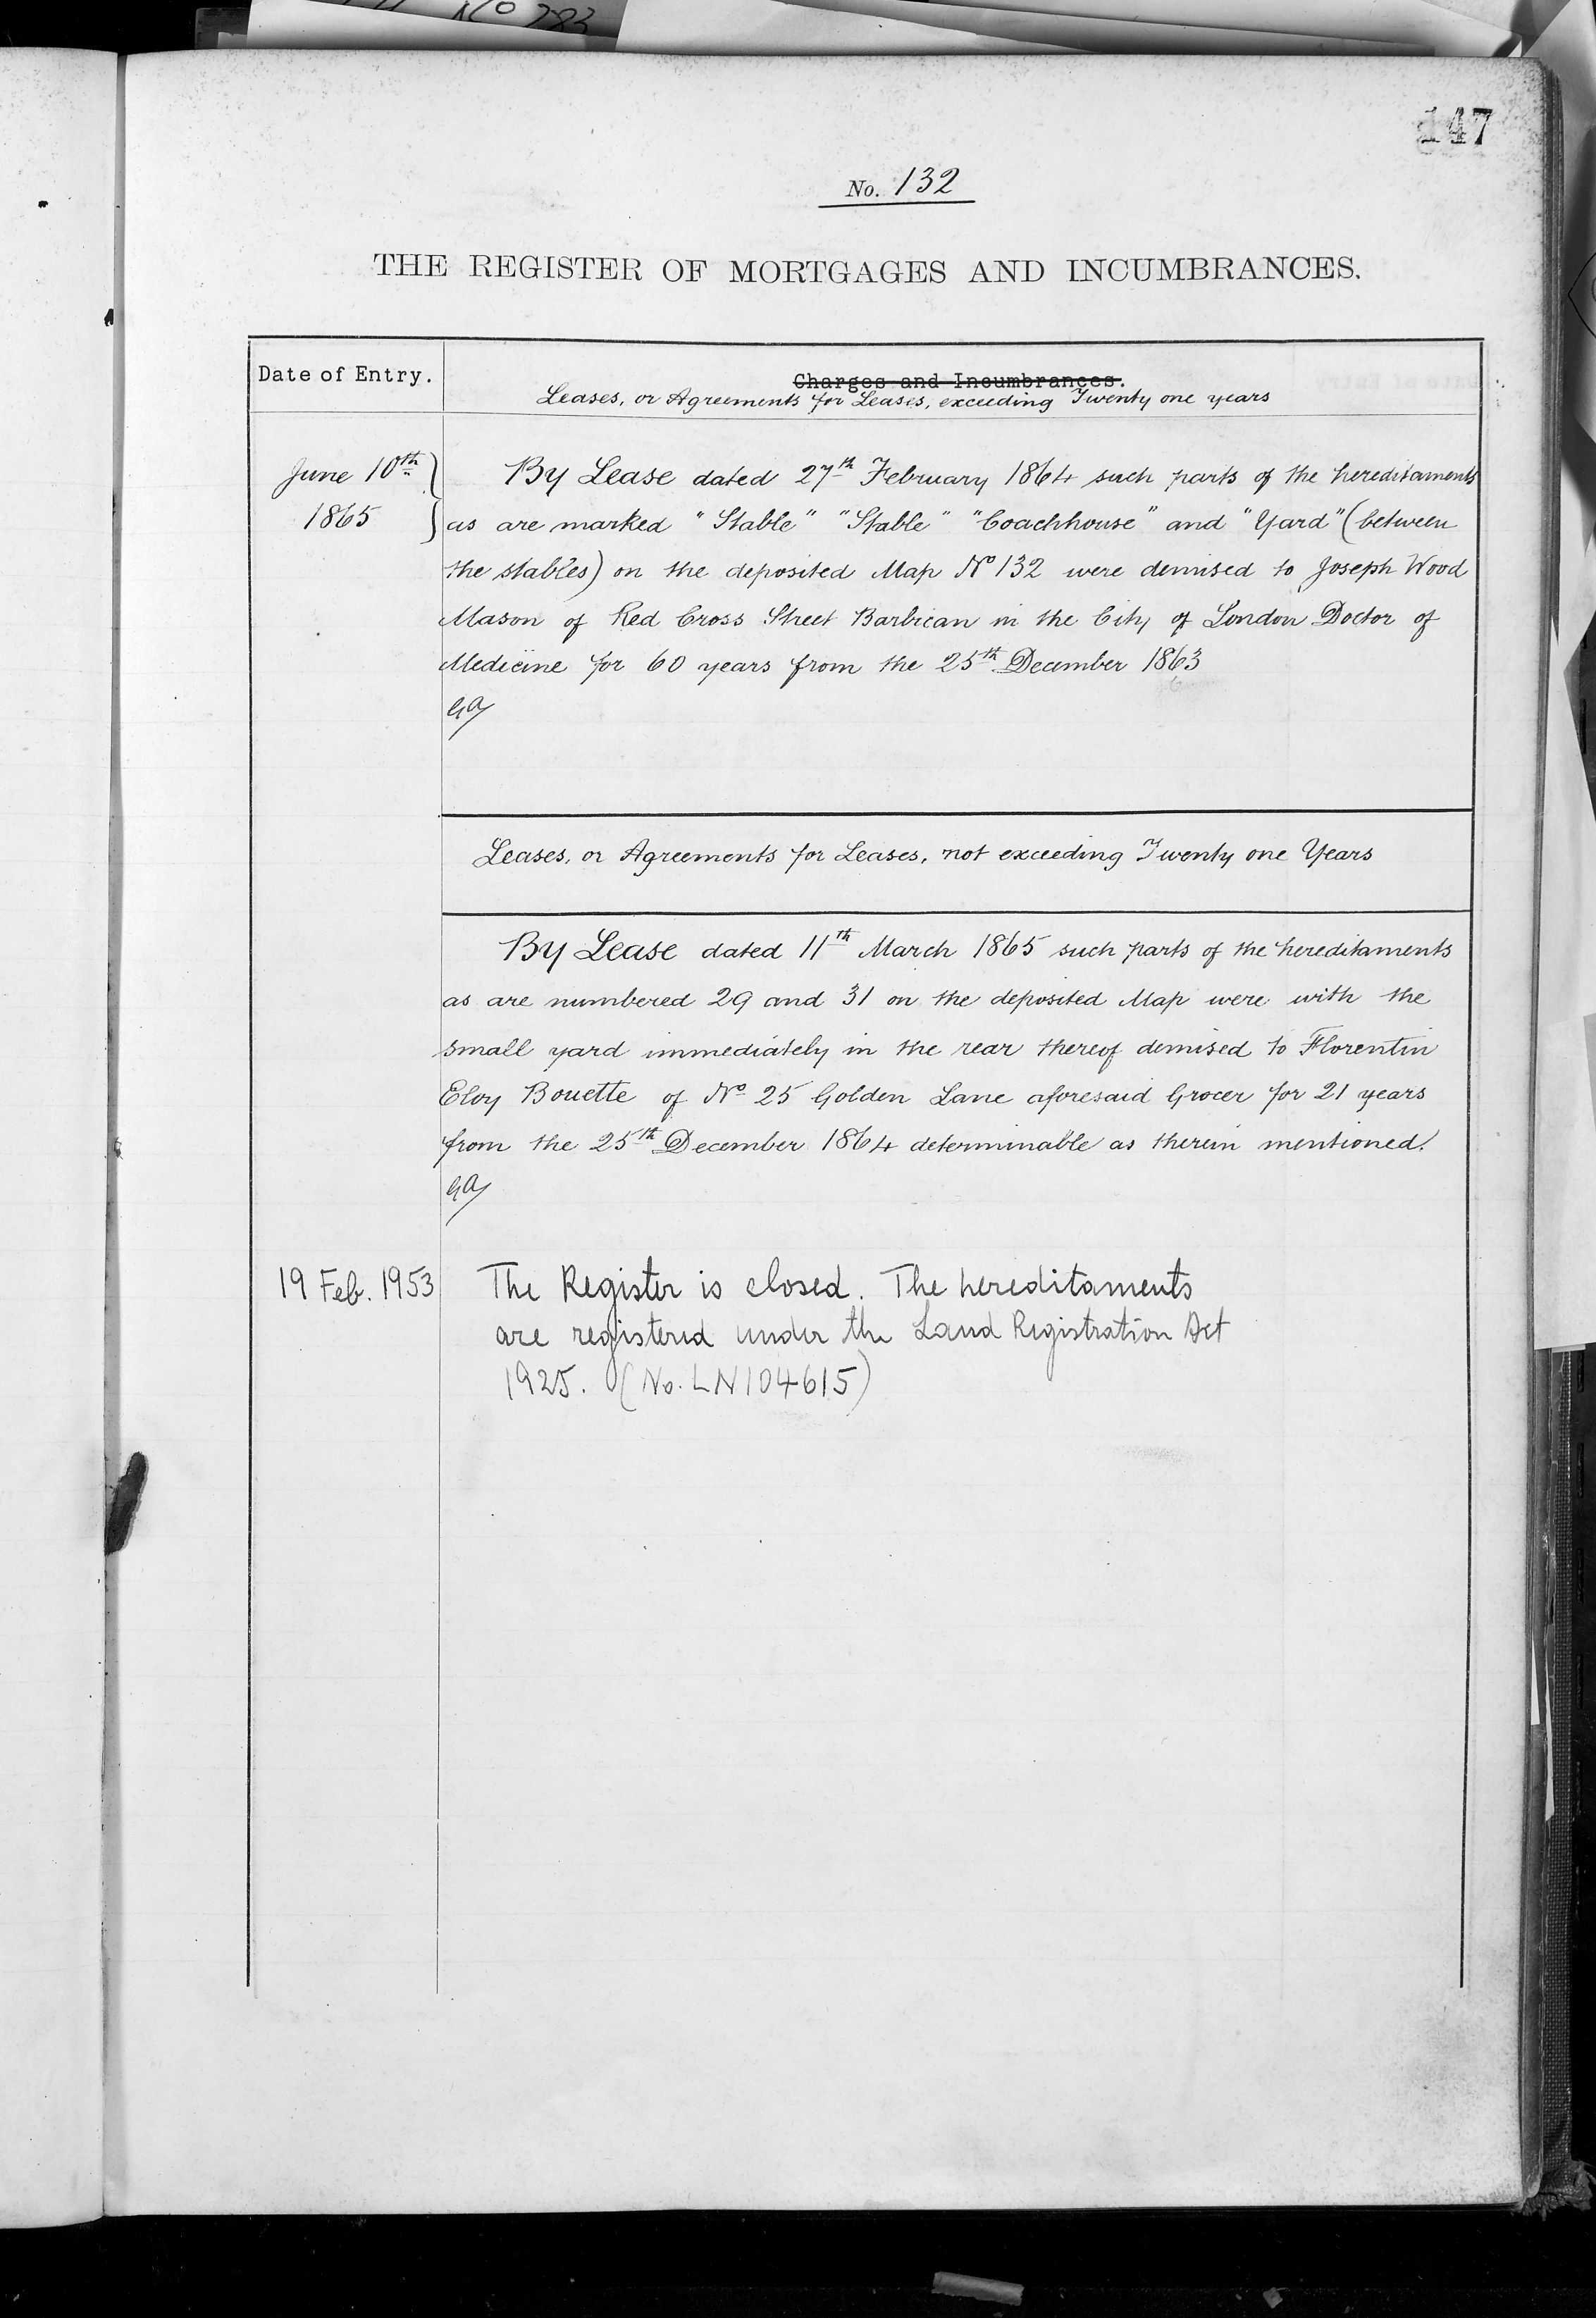 No 783
147
No. 132
THE REGISTER OF MORTGAGES AND INCUMBRANCES.
Date of Entry.
Charges and Incumbrances.
Leases, or Agreements for Leases, exceeding Twenty one years
June 10th
1865
By Lease dated 27th February 1864 such parts of the hereditaments
as are marked "Stable" "Stable" "Coachhouse" and "Yard" (between
the stables) on the deposited Map No 132 were demised to Joseph Wood
Mason of Red Cross Street Barbican in the City of London Doctor of
Medicine for 60 years from the 25th December 1863
Leases, or Agreements for Leases, not exceeding Twenty one Years
By Lease dated 11th March 1865 such parts of the hereditaments
as are numbered 29 and 31 on the deposited Map were with the
small yard immediately in the rear thereof demised to Florentin
Eloy Bouette of No 25 Golden Lane aforesaid Grocer for 21 years
from the 25th December 1864 determinable as therein mentioned.
19 Feb. 1953
The Register is closed. The hereditaments
are registered under the Land Registration Act
1925. (No. LN104615)